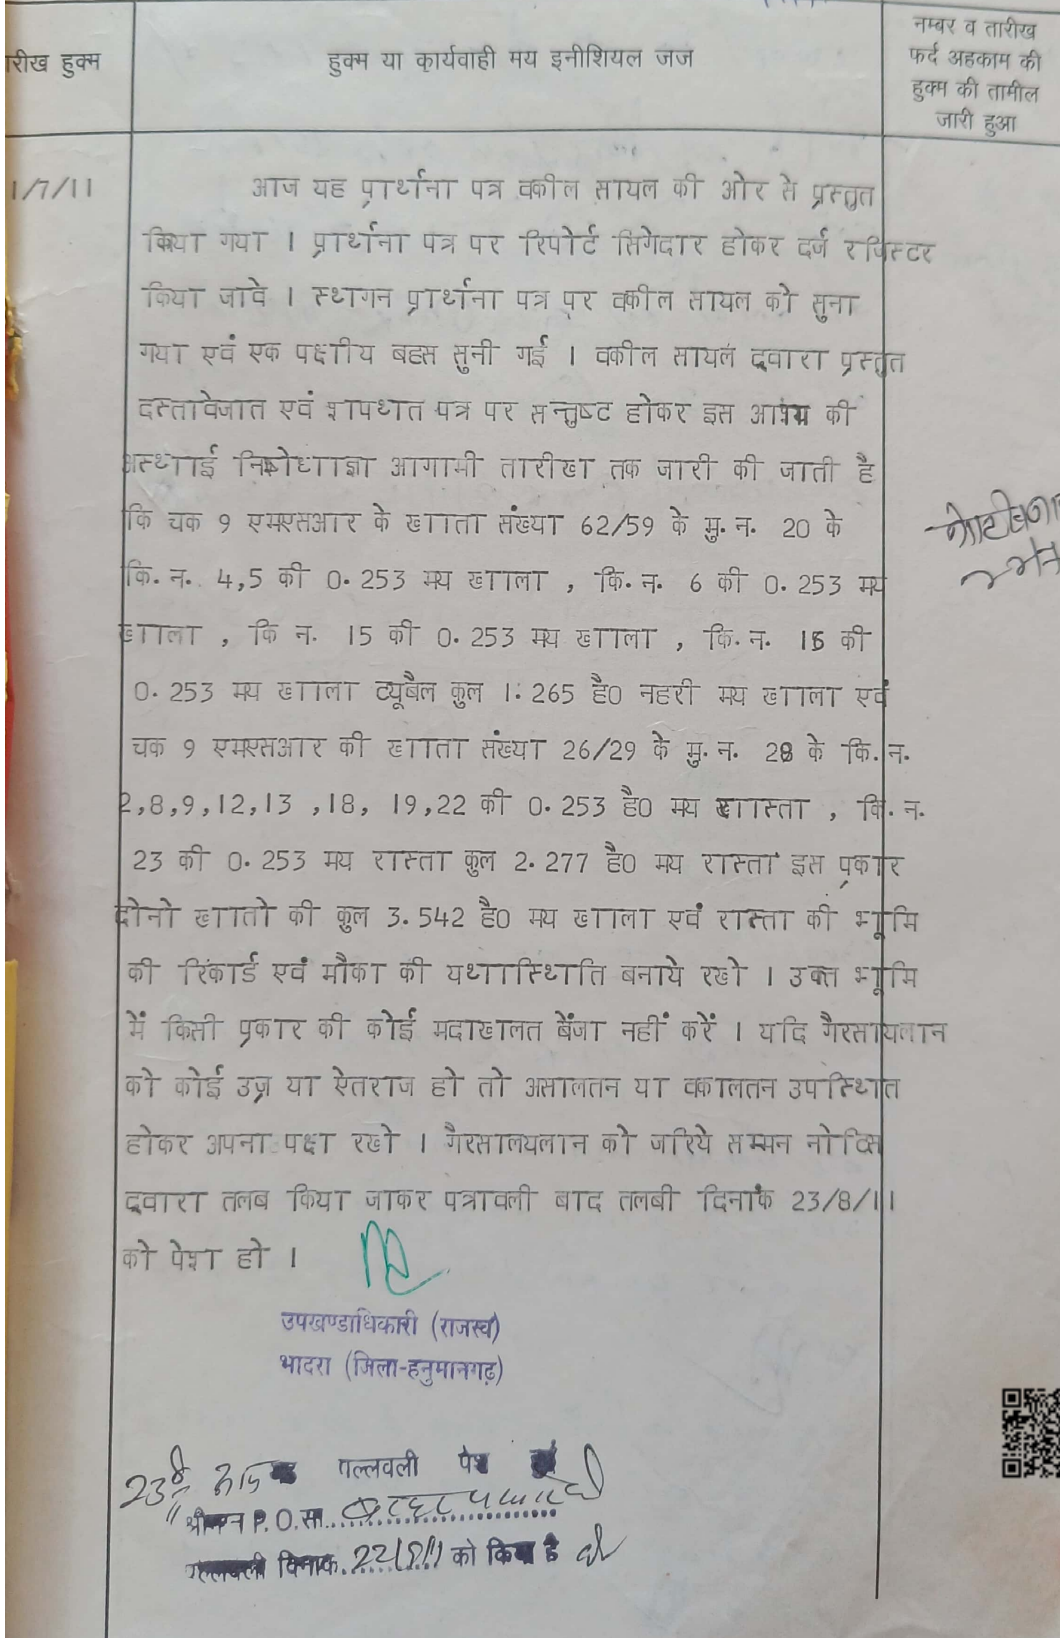 रीख हुक्म
हुक्म या कार्यवाही मय इनीशियल जज
नम्बर व तारीख
फर्द अहकाम की
हुक्म की तामील
जारी हुआ
1/7/11
आज यह प्रार्थना पत्र वकील सायल की ओर से प्रस्तुत
किया गया । प्रार्थना पत्र पर रिपोर्ट सिगेदार होकर दर्ज रजिस्टर
किया जावे । स्थगन प्रार्थना पत्र पर वकील सायल को सुना
गया एवं एक पक्षीय बहस सुनी गई । वकील सायल द्वारा प्रस्तुत
दस्तावेजात एवं शपथत पत्र पर सन्तुष्ट होकर इस आशय की
अस्थाई निषेधाज्ञा आगामी तारीख तक जारी की जाती है
कि चक 9 एमएसआर के खाता संख्या 62/59 के मु.न. 20 के
कि.न. 4,5 की 0.253 मय खाला , कि.न. 6 की 0.253 मय
खाला , कि न. 15 की 0.253 मय खाला , कि.न. 16 की
0.253 मय खाला ट्यूबैल कुल 1.265 है0 नहरी मय खाला एवं
चक 9 एमएसआर की खाता संख्या 26/29 के मु.न. 28 के कि.न.
2,8,9,12,13 ,18, 19,22 की 0.253 है0 मय रास्ता , कि.न.
23 की 0.253 मय रास्ता कुल 2.277 है0 मय रास्ता इस प्रकार
दोनो खातो की कुल 3.542 है0 मय खाला एवं रास्ता की भूमि
की रिकार्ड एवं मौका की यथास्थिति बनाये रखे । उक्त भूमि
में किसी प्रकार की कोई मदाखलत बेंजा नहीं करें । यदि गैरसायलान
को कोई उज्र या ऐतराज हो तो असालतन या वकालतन उपस्थित
होकर अपना पक्ष रखे । गैरसालयलान को जरिये सम्मन नोटिस
द्वारा तलब किया जाकर पत्रावली बाद तलबी दिनांक 23/8/11
को पेश हो ।
उपखण्डाधिकारी (राजस्व)
भादरा (जिला-हनुमानगढ़)
पत्त्रावली पेश
P.O.सा
दिनांक 22/9/11 को किया है